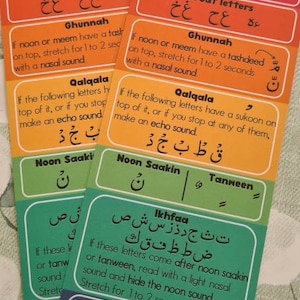 غ خ ع ح
Ghunnah
If noon or meem have a
on top, stretch for 1 to 2
with a nasal sound.
Qalqala
If the following letters h
top of it, or if you stop
make an echo sound.
بْ جْ دْ
Noon Saakin
نْ
If these
or tanwe
sound and
Stretch for
letters
غ خ ع ح ء ه
Ghunnah
If noon or meem have a tashdeed
on top, stretch for 1 to 2 seconds
with a nasal sound.
نّ
Qalqala
If the following letters have a sukoon on
top of it, or if you stop at any of them,
make an echo sound.
قْ طْ بْ جْ دْ
Noon Saakin
Tanween
نْ
Ikhfaa
ت ث ج د ذ ز س ش ص
ض ط ظ ف ق ك
If these letters come after noon saakin
or tanween, read with a light nasal
sound and hide the noon sound.
Stretch for 1 to 2